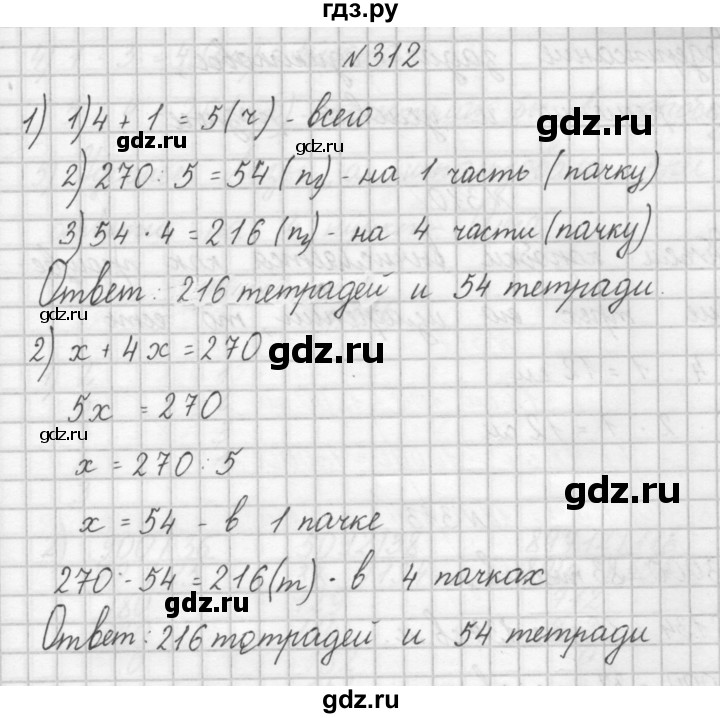 гдз.ру
№312
1) 1) 4 + 1 = 5 (ч) - всего
gdz.ru
gdz.ru
2) 270 : 5 = 54 (п) - на 1 часть (пачку)
3) 54 · 4 = 216 (п) - на 4 части (пачку)
Ответ: 216 тетрадей и 54 тетради.
gdz.ru
2) x + 4x = 270
gdz.ru
5x = 270
gdz.ru
x = 270 : 5
gdz.ru
x = 54 - в 1 пачке
270 - 54 = 216 (т) - в 4 пачках
gdz.ru
Ответ: 216 тетрадей и 54 тетради
gdz.ru
gdz.ru